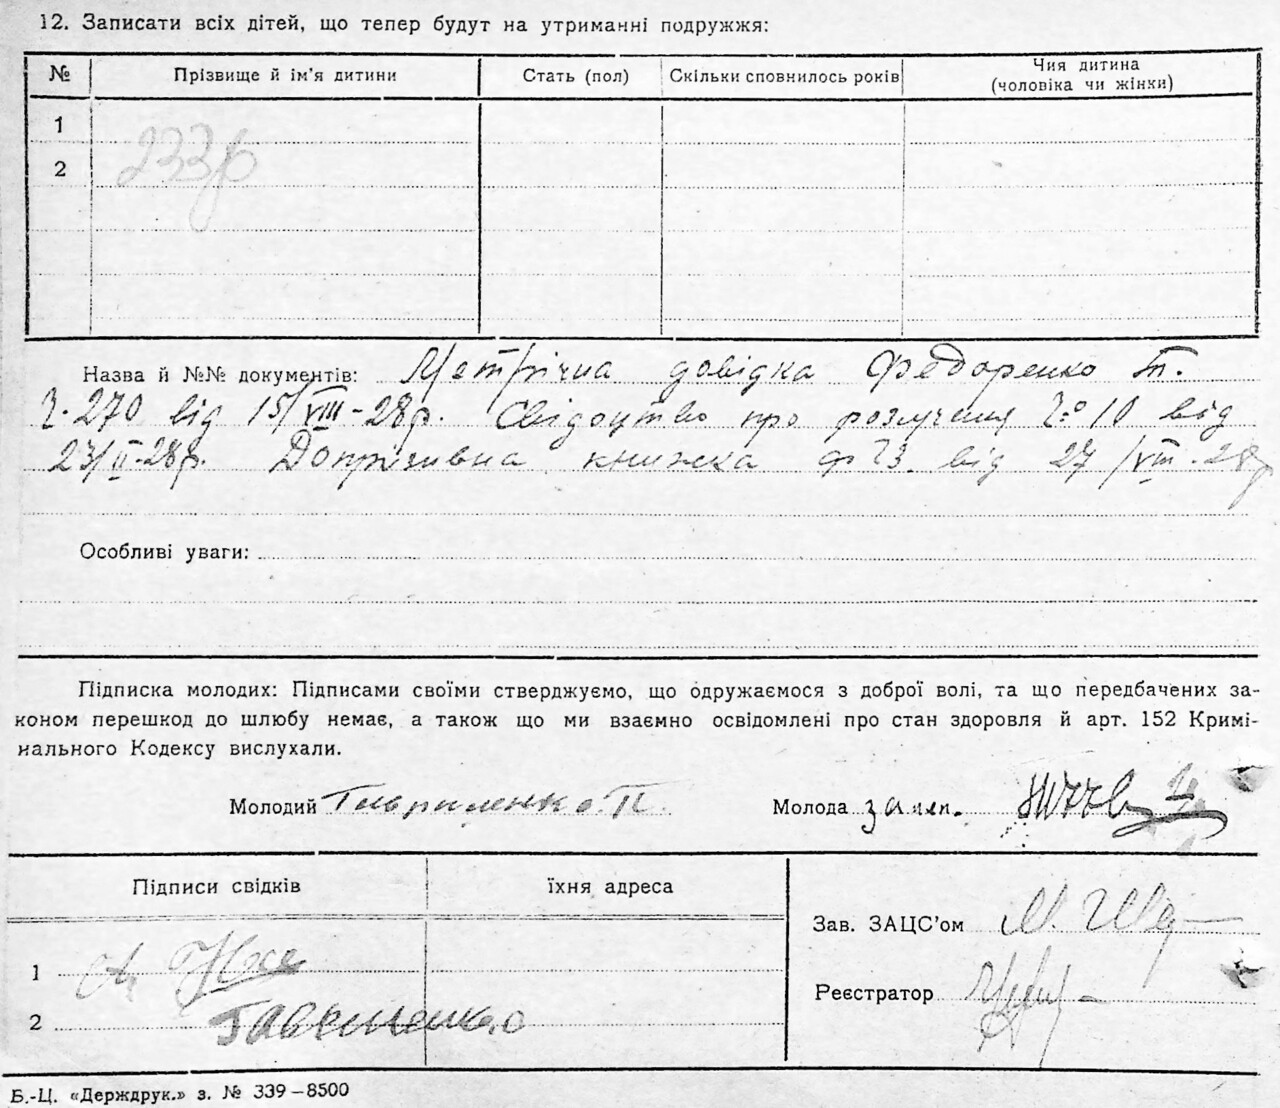 12. Записати всіх дітей, що тепер будут на утриманні подружжя:
№ Прізвище й ім'я дитини Стать (пол) Скільки сповнилось років Чия дитина (чоловіка чи жінки)
1
2 233р
Назва й №№ документів: Метрічна довідка Федоренко Т.
Ч. 270 від 15/VIII-28р. Свідоцтво про розлучення № 10 від
23/II-28р. Допризивна книжка від 27/VIII-28р
Особливі уваги:
Підписка молодих: Підписами своїми стверджуємо, що одружаємося з доброї волі, та що передбачених за-
коном перешкод до шлюбу немає, а також що ми взаємно освідомлені про стан здоровля й арт. 152 Кримі-
нального Кодексу вислухали.
Молодий Гавриленко П. Молода
Підписи свідків їхня адреса
Зав. ЗАЦС'ом
1
Реєстратор
2
Б.-Ц. «Держдрук.» з. № 339–8500